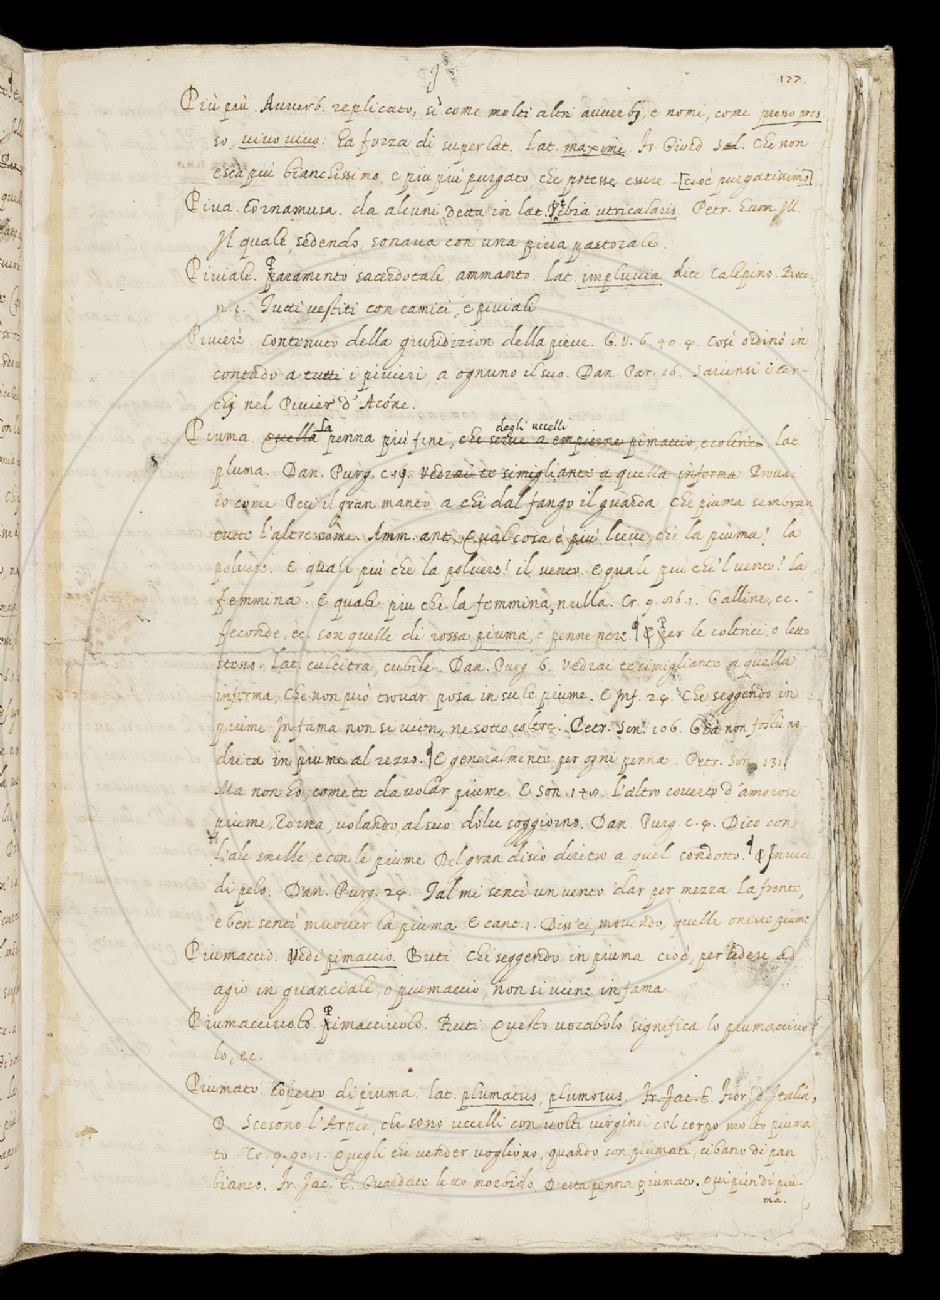 177.
Più più. Avverb. replicato, sì come molti altri avverbj, e nomi, come presso pres
so, vivo vivo: ha forza di superlat. lat. maxime. Fr. Giord. Sal. Che non
esca più bianchissimo, e più più purgato, che potesse essere [cioè purgatissimo]
Piva. Cornamusa. da alcuni detta in lat. tibia utricularis. Petr.
Il quale, sedendo, sonava con una piva pastorale.
Piviale. Paramento sacerdotale, ammanto. lat. impluvia dice Calepino. Bocc.
n. 1. Tutti vestiti con camici, e piviali
Piviere. Contenuto della giuridizion della pieve. G. V. 6. 40. 4. Così ordinò in
contado a tutti i pivieri, a ognuno il suo. Dan. Par. 16. Sariensi i Cer-
chj nel Pivier d'Acone.
Piuma. Quella La penna più fine, degli uccelli che serve a empierne piumaccio, e coltrice lat.
pluma. Dan. Purg. c. 19. Vedrai te simigliante a quella inferma Trovai
io come Pesi il gran manto a chi dal fango il guarda Che piuma sembran
tutte l'altre some. Amm. ant. Qual cosa è più lieve, che la piuma? la
polvere. E quale più che la polvere? il vento. E quale più che 'l vento? la
femmina. E quale più che la femmina, nulla. Cr. 9. 86. 1. Galline, ec.
feconde, ec. con quelle di rossa piuma, e penne nere. ¶ Per le coltrici, o letto
stesso. lat. culcitra, cubile. Dan. Purg. 6. Vedrai te simigliante a quella
inferma, Che non può trovar posa in su le piume. E Inf. 24. Che seggendo in
piume In fama non si vien, ne sotto coltre. Petr. Son. 106. Già non fostù no
drita in piume al rezzo. ¶ E generalmente per ogni penna. Petr. Son. 131.
Ma non ho, come te da volar piume. E Son. 148. L'altro coverto d'amorose
piume, Torna, volando, al suo dolce soggiorno. Dan. Purg. c. 4. Dico con
l'ale snelle, e con le piume Del gran disio diretro a quel condotto. ¶ In vece
di pelo. Dan. Purg. 24. Tal mi sentì un vento dar per mezza la fronte,
e ben sentì muover la piuma. E cant. 1. Diss'ei, movendo, quelle oneste piume
Piumaccio. Vedi pimaccio. Buti. Chi seggendo in piuma cioè, per sedere ad
agio in guanciale, o piumaccio, non si viene in fama.
Piumacciuolo. Pimacciuolo. Buti. Questo vocabolo significa lo piumacciuo
lo, ec.
Piumato. Coperto di piuma. lat. plumatus, plumosus. Fr. Jac. C. Fior. d'Italia,
D. Scesono l'Arpie, che sono uccelli con volti vergine, col corpo molto piuma
to. Cr. 9. 90. 1. Quegli che vender vogliono, quando son piumati, cibano di pan
bianco. Fr. Jac. T. Guardate letto morbido, D'esta penna piumato. Qui pien di piu-
ma.